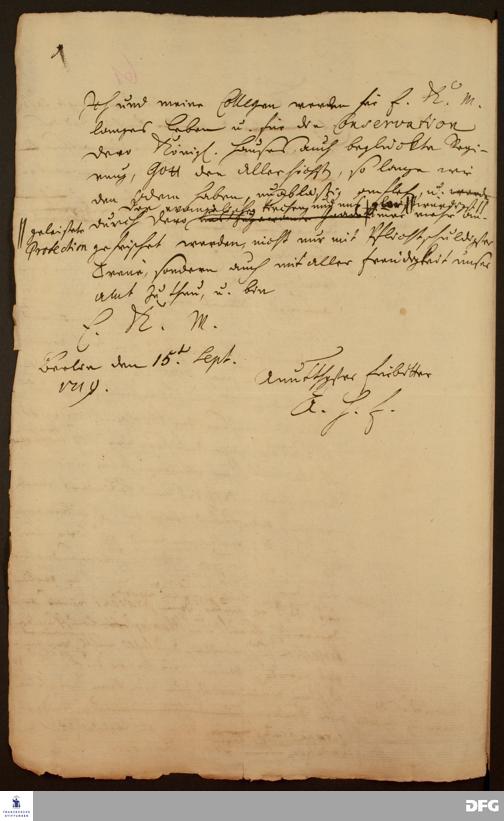 Ich und meine Collegen werden für E. K. M.
langes Leben u. für die Conservation
dero Königl. Hauses auch beglückte Regi-
rung, Gott den Allerhöchst, so lange wir
den Odem haben, unabläßig anflehen, u.
durch Dero mehr an-
geleistete
Protection
gefrischet werden, nicht nur mit Pflicht-schuldigster
Treue, sondern auch mit aller Freudigkeit unser
Amt zu thun, u. bin
E. K. M.
Berlin den 15t. Sept.
1719.
Fürbitter
A. H. F.
FRANCKESCHE
STIFTUNGEN
DFG